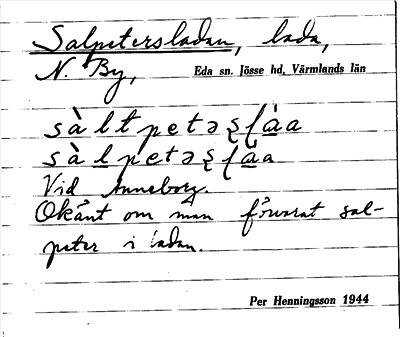 Salpetersladan, lada,
N. By, Eda sn. Jösse hd, Värmlands län
sàltpetəʂɭàa
sàlpetəʂɭàa
Vid Anneborg.
Okänt om man förvarat sal-
peter i ladan.
Per Henningsson 1944